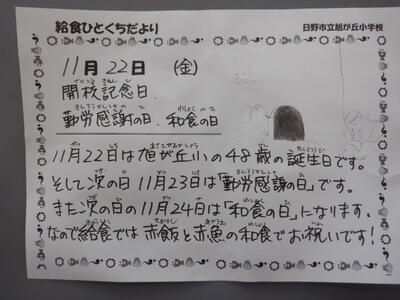 給食ひとくちだより
日野市立旭が丘小学校
11月22日 (金)
開校記念日、
勤労感謝の日、和食の日
11月22日は旭が丘小の48歳の誕生日です。
そして次の日11月23日は「勤労感謝の日」です。
また次の日の11月24日は「和食の日」になります。
なので給食では赤飯と赤魚の和食でお祝いです!